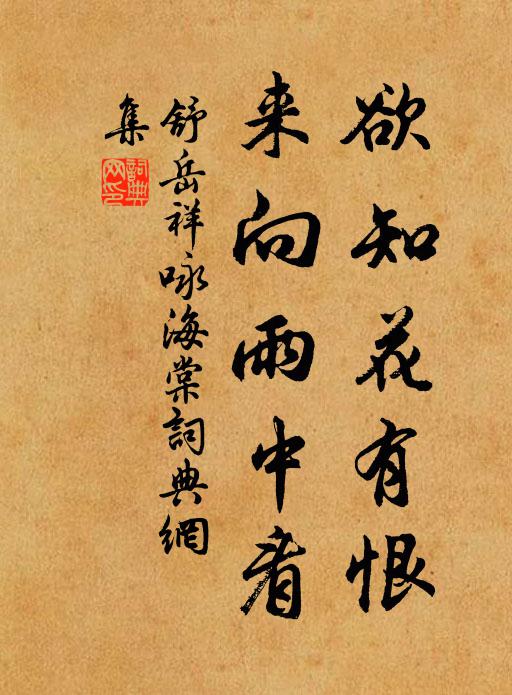 欲知花有恨
来向雨中看
舒岳祥咏海棠詞典網
集
詞典網印